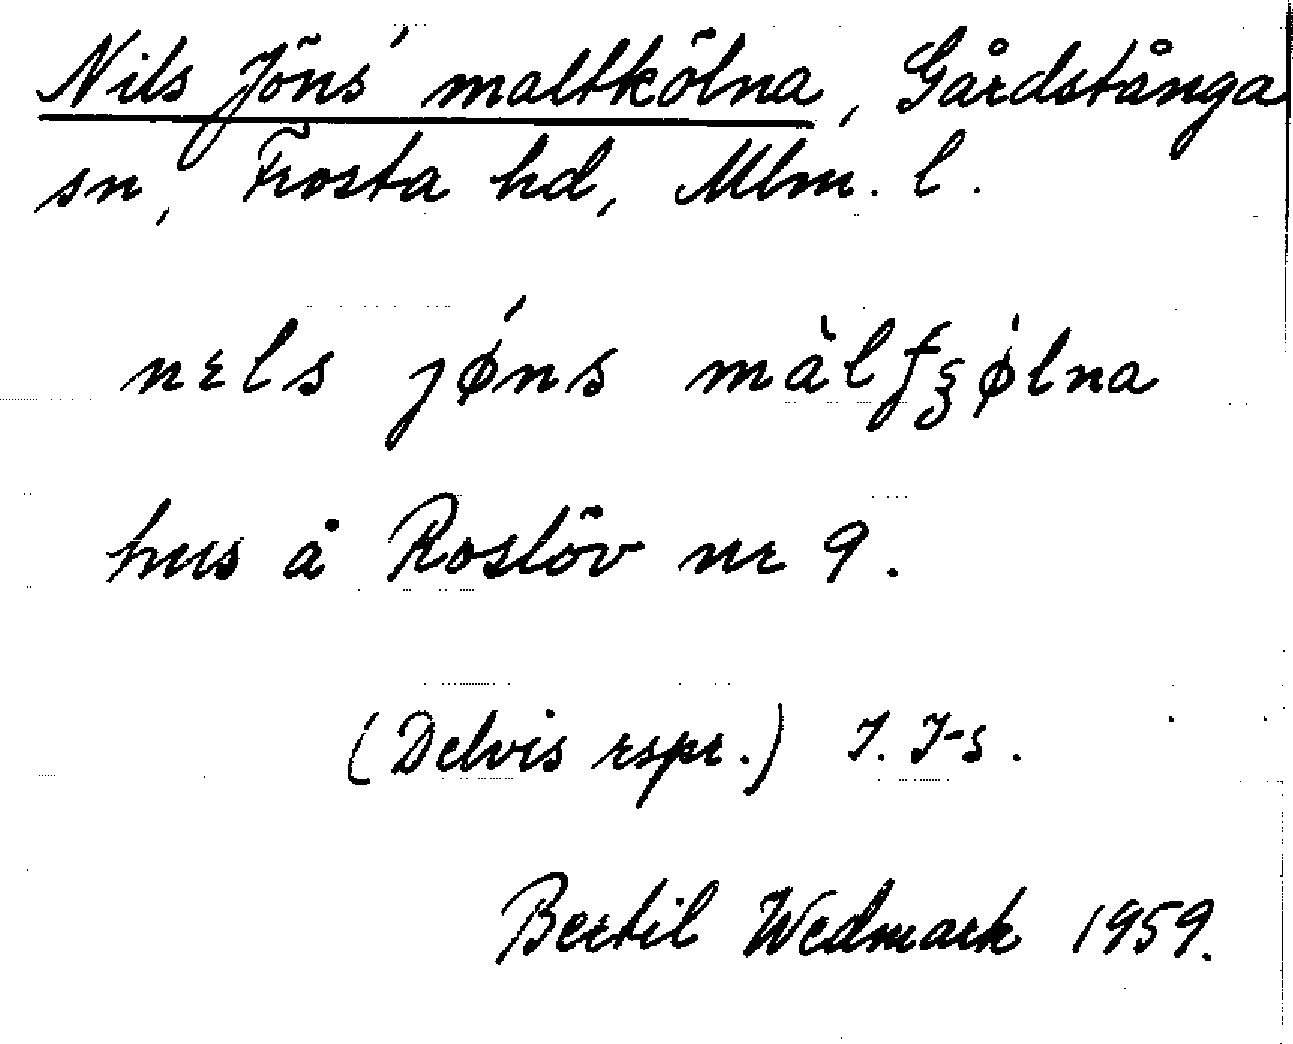 Nils Jöns' maltkölna, Gårdstånga
sn, Frosta hd, Mlm. l.
nɛls jǿns màlfʒø̍lna
hus å Roslöv nr 9.
(Delvis rspr.) I. I-s.
Bertil Wedmark 1959.